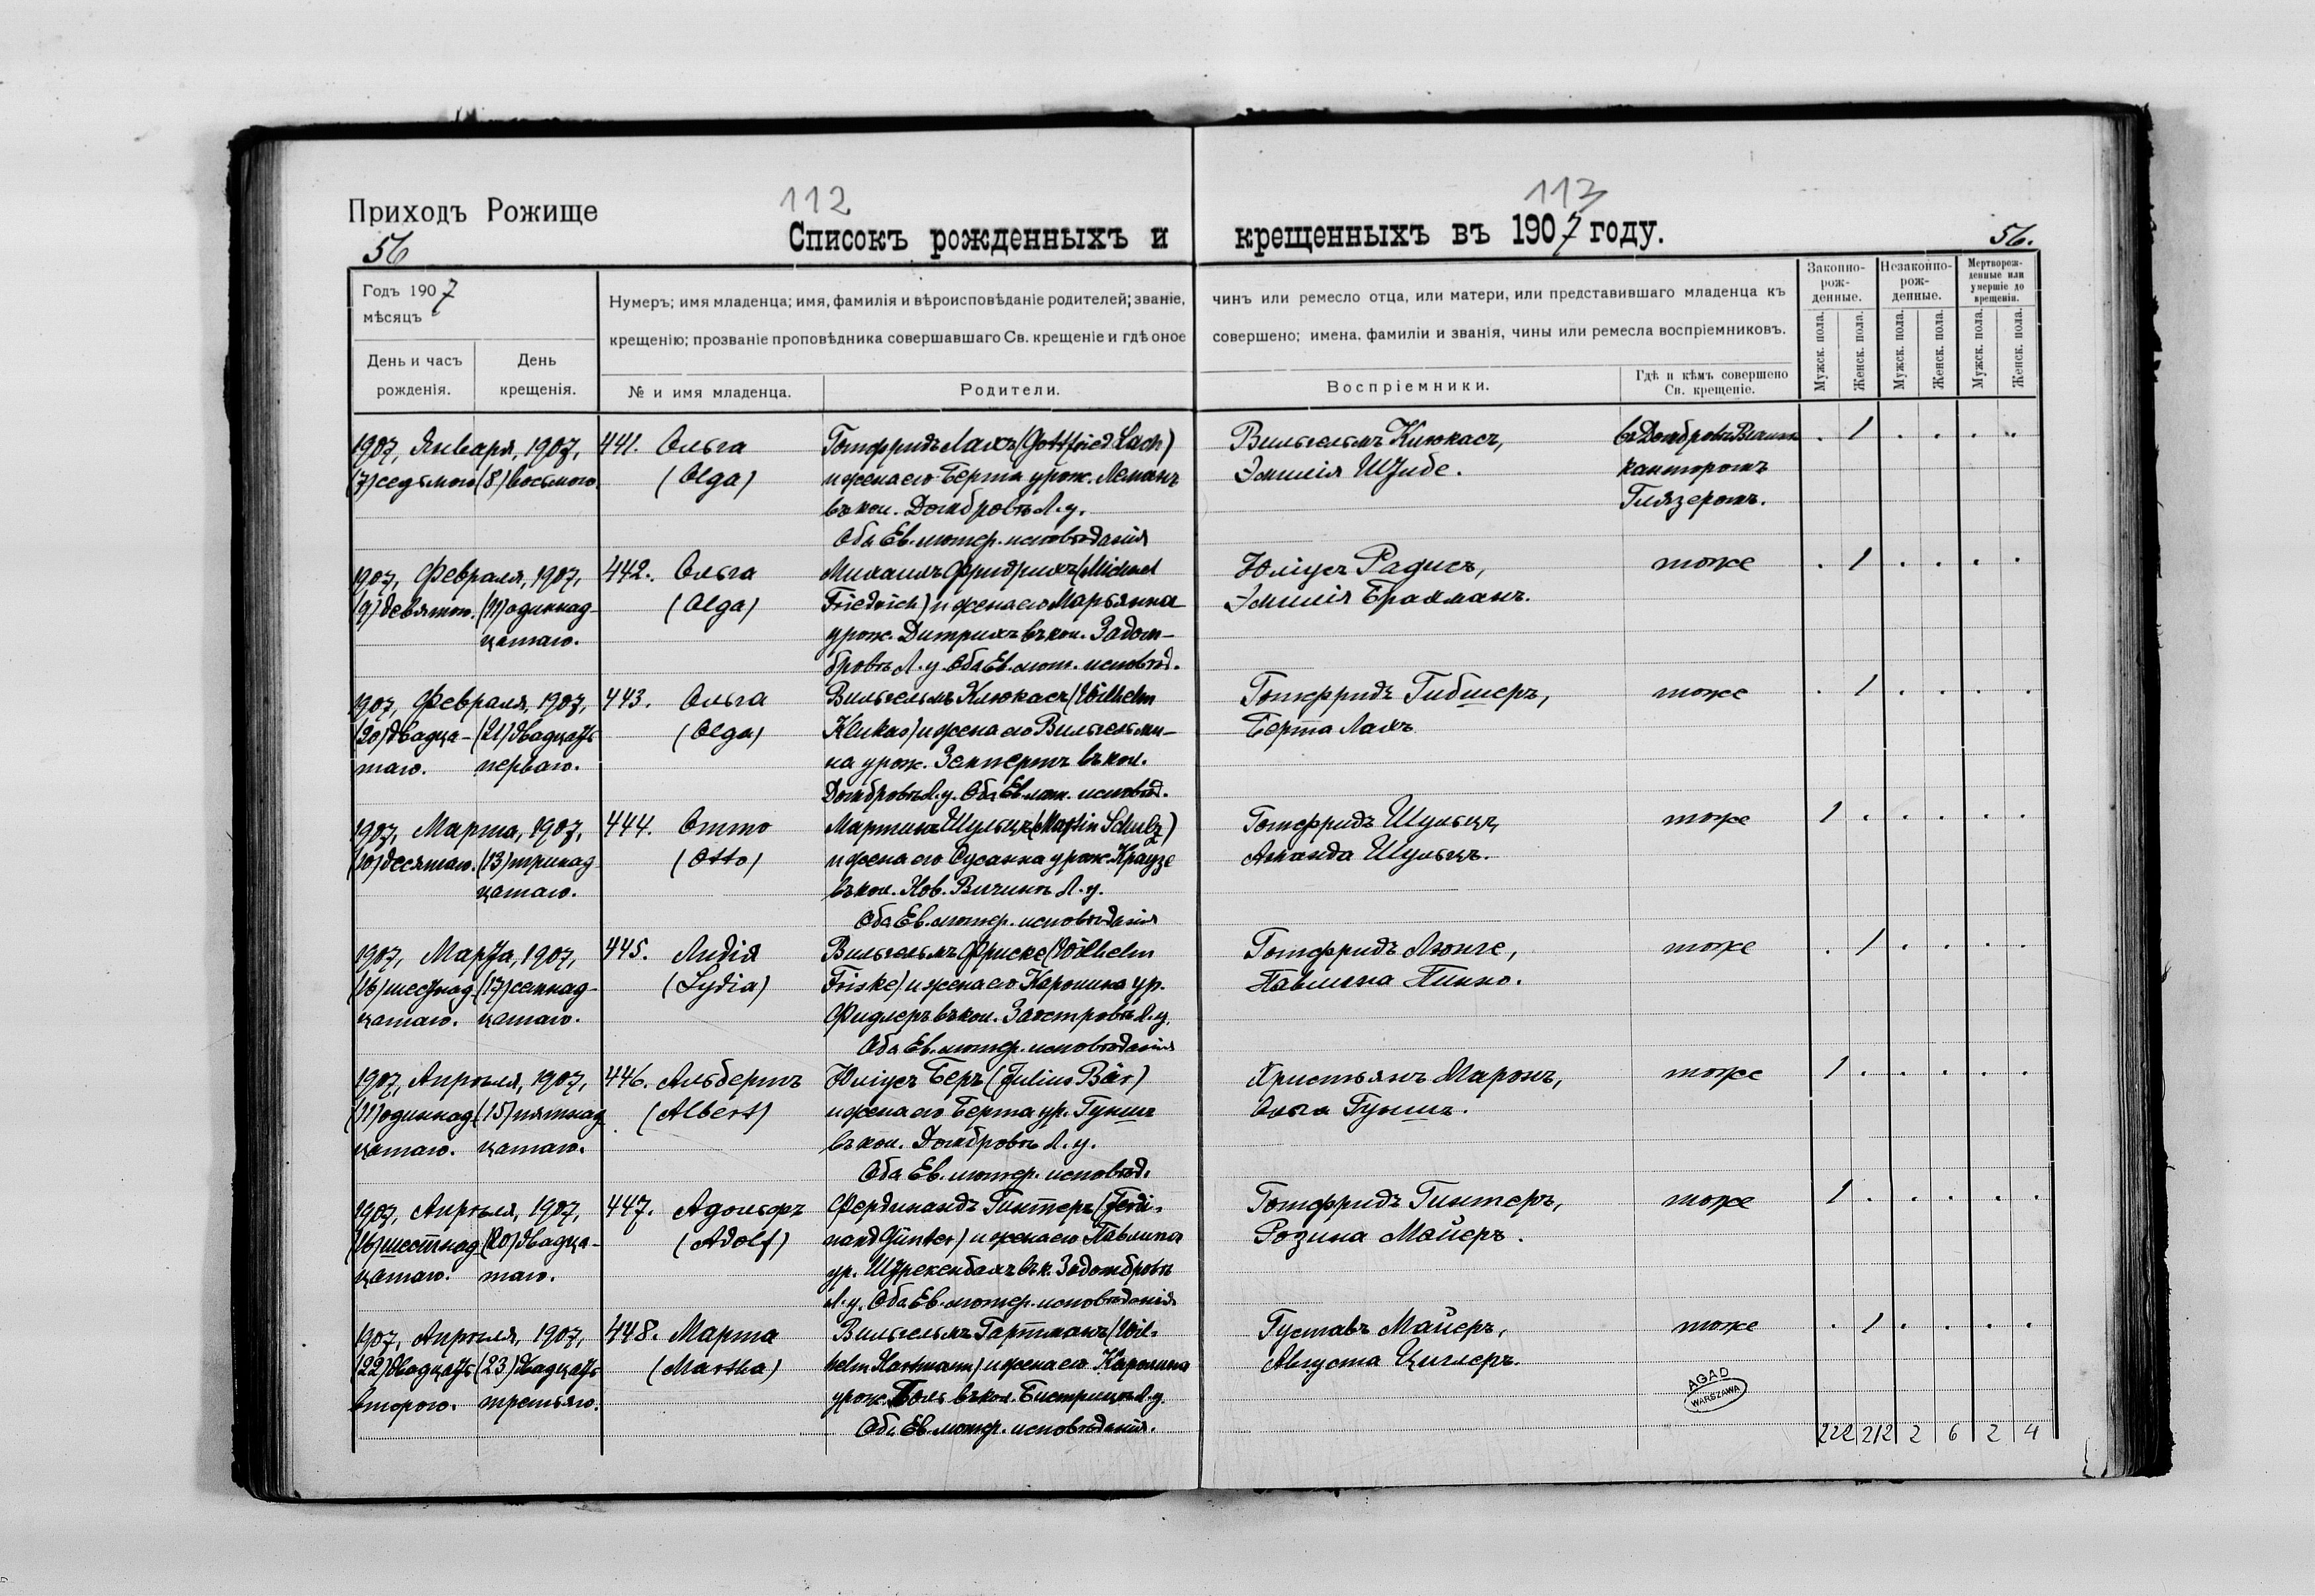 112
113
Приходъ Рожище
56
Списокъ рожденныхъ и крещенныхъ въ 1907 году.
56.
Годъ 1907
мѣсяцъ
День и часъ рожденія.
День крещенія.
Нумеръ; имя младенца; имя, фамилія и вѣроисповѣданіе родителей; званіе, чинъ или ремесло отца, или матери, или представившаго младенца къ
крещенію; прозваніе проповѣдника совершавшаго Св. крещеніе и гдѣ оное совершено; имена, фамиліи и званія, чины или ремесла воспріемниковъ.
№ и имя младенца.
Родители.
Воспріемники.
Гдѣ и кѣмъ совершено
Св. крещеніе.
Законно-
рож-
денные.
Незаконно-
рож-
денные.
Мертворож-
денные или
умершіе до
крещенія.
Мужск. пола.
Женск. пола.
Мужск. пола.
Женск. пола.
Мужск. пола.
Женск. пола.
1907, Января, 1907, 441. Ольга Готфридъ Лахъ (Gottfried Lach) Вильгельмъ Клюкасъ, . 1 . . . .
(7) седьмого (8) восьмого. (Olga) и жена его Берта урож. Леманъ Эмилія Штибе. канторомъ
въ кол. Домбровѣ Л. у. Глязеромъ.
Оба Ев. лютер. исповѣданія
1907, Февраля, 1907, 442. Ольга Михаилъ Фридрихъ (Michael Юліусъ Радисъ, тоже . 1 . . . .
(9) девятого. (11) одиннад- (Olga) Friedrich) и жена его Марьянна Эмилія Брахманъ.
цатаго. урож. Дитрихъ въ кол. Задом-
бровѣ Л. у. Оба Ев. лют. исповѣд.
1907, Февраля, 1907, 443. Ольга Вильгельмъ Клюкасъ (Wilhelm Готфридъ Гибшеръ, тоже . 1 . . . .
(20) двадца- (21) двадцать (Olga) Klukas) и жена его Вильгельми- Берта Лахъ
таго. перваго. на урож. въ кол.
Домбровѣ Л. у. Оба Ев. лют. исповѣд.
1907, Марта, 1907, 444. Отто Мартинъ Шульцъ (Martin Schulz) Готфридъ Шульцъ, тоже 1 . . . . .
(10) десятаго. (13) тринад- (Otto) и жена его Сусанна урож. Краузе Аманда Шульцъ.
цатаго. въ кол. Нов. Вичинѣ Л. у.
Оба Ев. лютер. исповѣданія
1907, Марта, 1907, 445. Лидія Вильгельмъ Фриске (Wilhelm Готфридъ Люнге, тоже . 1 . . . .
(16) шестнад- (17) семнад- (Lydia) Friske) и жена его Каролина ур. Павлина Пинно.
цатаго. цатаго. Фидлеръ въ кол. Заостровѣ Л. у.
Оба Ев. лютер. исповѣданія
1907, Апрѣля, 1907, 446. Альбертъ Юліусъ Беръ (Julius Bär) Христьянъ Маронъ, тоже 1 . . . . .
(11) одиннад- (15) пятнад- (Albert) и жена его Берта ур. Гуншъ Ольга Гуншъ.
цатаго. цатаго. въ кол. Домбровѣ Л. у.
Оба Ев. лютер. исповѣд.
1907, Апрѣля, 1907, 447. Адольфъ Фердинандъ Гинтеръ (Ferdi- Готфридъ Гинтеръ, тоже 1 . . . . .
(16) шестнад- (20) двадца- (Adolf) nand Günter) и жена его Павлина Розина Майеръ.
цатаго. таго. ур. Штрекенбахъ въ к. Задомбровѣ
Л. у. Оба Ев. лютер. исповѣданія
1907, Апрѣля, 1907, 448. Марта Вильгельмъ Гартманъ (Wil- Густавъ Майеръ, тоже . 1 . . . .
(22) двадцать (23) двадцать (Martha) helm Hartmann) и жена его Каролина Августа Циглеръ.
второго. третьяго. урож. въ кол. Бистрица Л. у.
Оба Ев. лютер. исповѣданія.
AGAD
WARSZAWA
222 212 2 6 2 4